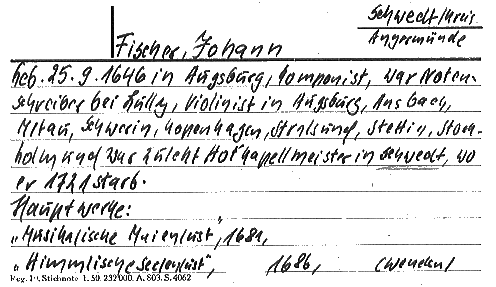 Schwedt/Kreis
Angermünde
Fischer, Johann
Geb. 25.9.1646 in Augsburg, Komponist, war Noten-
schreiber bei Lully, Violinist in Augsburg, Ansbach,
Mitau, Schwerin, Kopenhagen, Stralsund, Stettin, Stock-
holm und war zuletzt Hofkapellmeister in Schwedt, wo
er 1721 starb.
Hauptwerke:
"Musikalische Maienlust", 1681,
"Himmlische Seelenlust", 1686, (wenden!
Stichnote 1. 50. 232000. A. 803. S. 4062